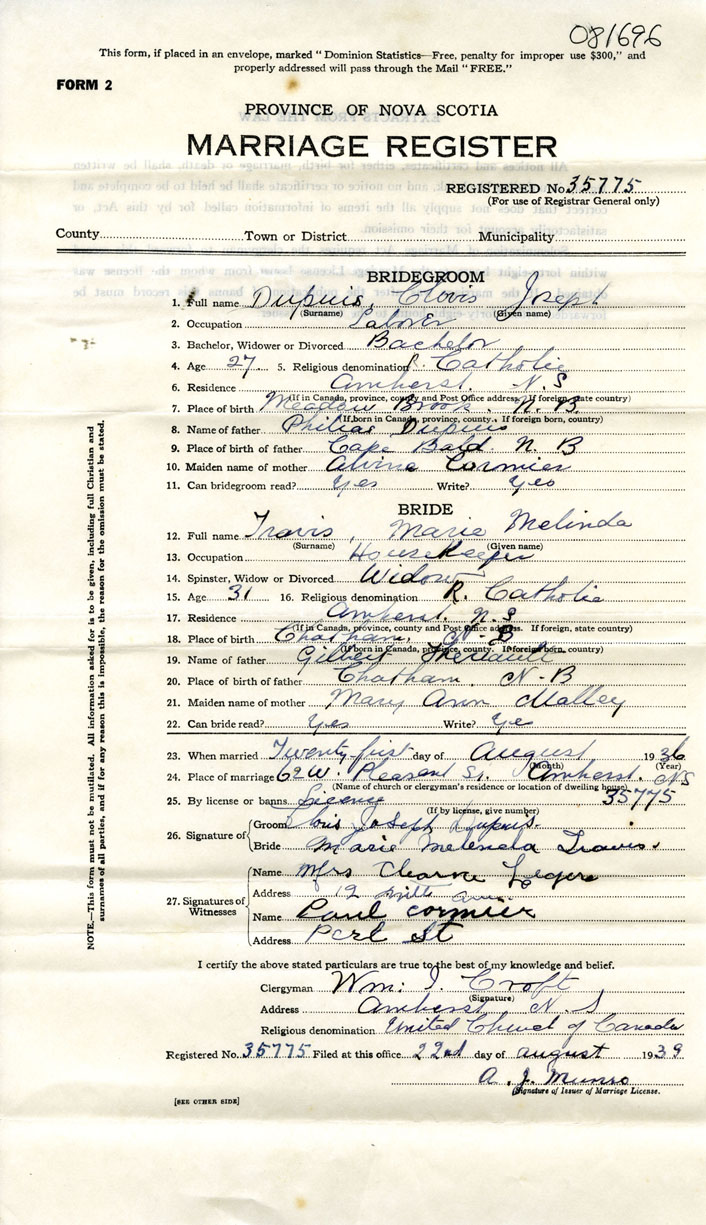 081696
This form, if placed in an envelope, marked "Dominion Statistics—Free, penalty for improper use $300," and
properly addressed will pass through the Mail "FREE."
FORM 2
PROVINCE OF NOVA SCOTIA
MARRIAGE REGISTER
REGISTERED No. 35775
(For use of Registrar General only)
County Town or District Municipality
BRIDEGROOM
1. Full name Dupuis, Clovis Joseph
(Surname) (Given name)
2. Occupation Laborer
3. Bachelor, Widower or Divorced Bachelor
4. Age 27 5. Religious denomination R. Catholic
6. Residence Amherst. N.S
(If in Canada, province, county and Post Office address. If foreign, state country)
7. Place of birth Meadow Brook. N.B.
(If born in Canada, province, county. If foreign born, country)
8. Name of father Philias Dupuis
9. Place of birth of father Cape Bald. N.B
10. Maiden name of mother Alvina Cormier
11. Can bridegroom read? Yes Write? Yes
BRIDE
12. Full name Travis, Marie Melinda
(Surname) (Given name)
13. Occupation Housekeeper
14. Spinster, Widow or Divorced Widow
15. Age 31 16. Religious denomination R. Catholic
17. Residence Amherst. N.S
(If in Canada, province, county and Post Office address. If foreign, state country)
18. Place of birth Chatham, N-B
(If born in Canada, province, county. If foreign born, country)
19. Name of father Gilbert Theriault
20. Place of birth of father Chatham. N-B
21. Maiden name of mother Mary Ann Malley
22. Can bride read? Yes Write? Yes
23. When married Twenty first day of August 1936
(Month) (Year)
24. Place of marriage 62 W. Pleasant St. Amherst. NS
(Name of church or clergyman's residence or location of dwelling house)
25. By license or banns License 35775
(If by license, give number)
26. Signature of Groom Clovis Joseph Dupuis.
Bride Marie Melenda Travis.
27. Signatures of Witnesses Name Mrs Legere
Address 12
Name Paul Cormier
Address Perl St
I certify the above stated particulars are true to the best of my knowledge and belief.
Clergyman Wm. I. Croft
(Signature)
Address Amherst N.S
Religious denomination United Church of Canada
Registered No. 35775 Filed at this office 22nd day of august 1939
A. J. Munro
(Signature of Issuer of Marriage License.
[SEE OTHER SIDE]
NOTE.—This form must not be mutilated. All information asked for is to be given, including full Christian and
surnames of all parties, and if for any reason this is impossible, the reason for the omission must be stated.